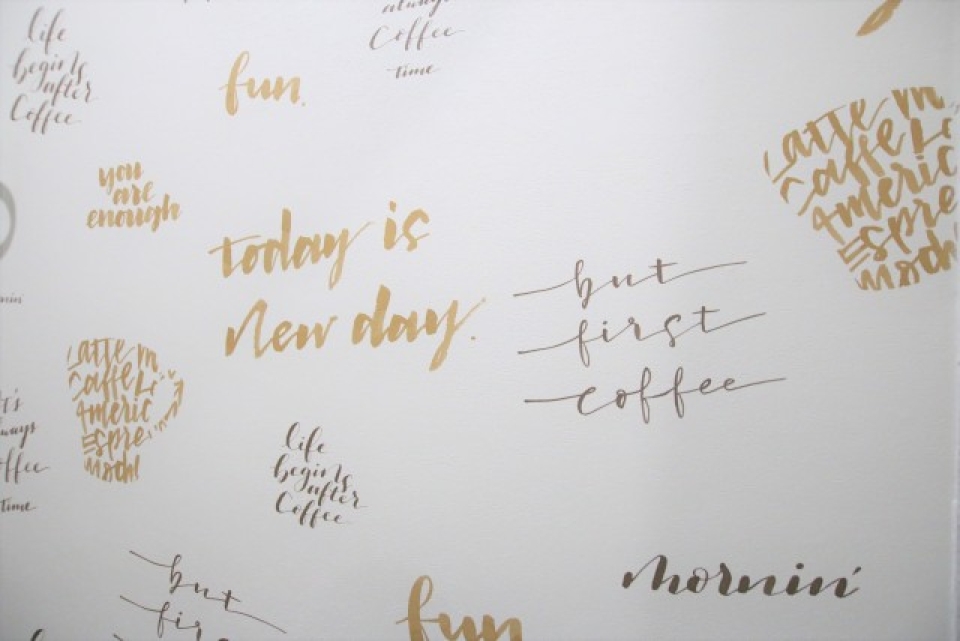 always
Coffee
time
life
begins
after
Coffee
fun.
you
are
enough
Latte m
Caffe L
Americ
Espre
Moch
today is
New day.
but
first
coffee
Latte m
Caffe L
Americ
Espre
Moch
life
begins
after
Coffee
time
but
fir
fun
mornin'